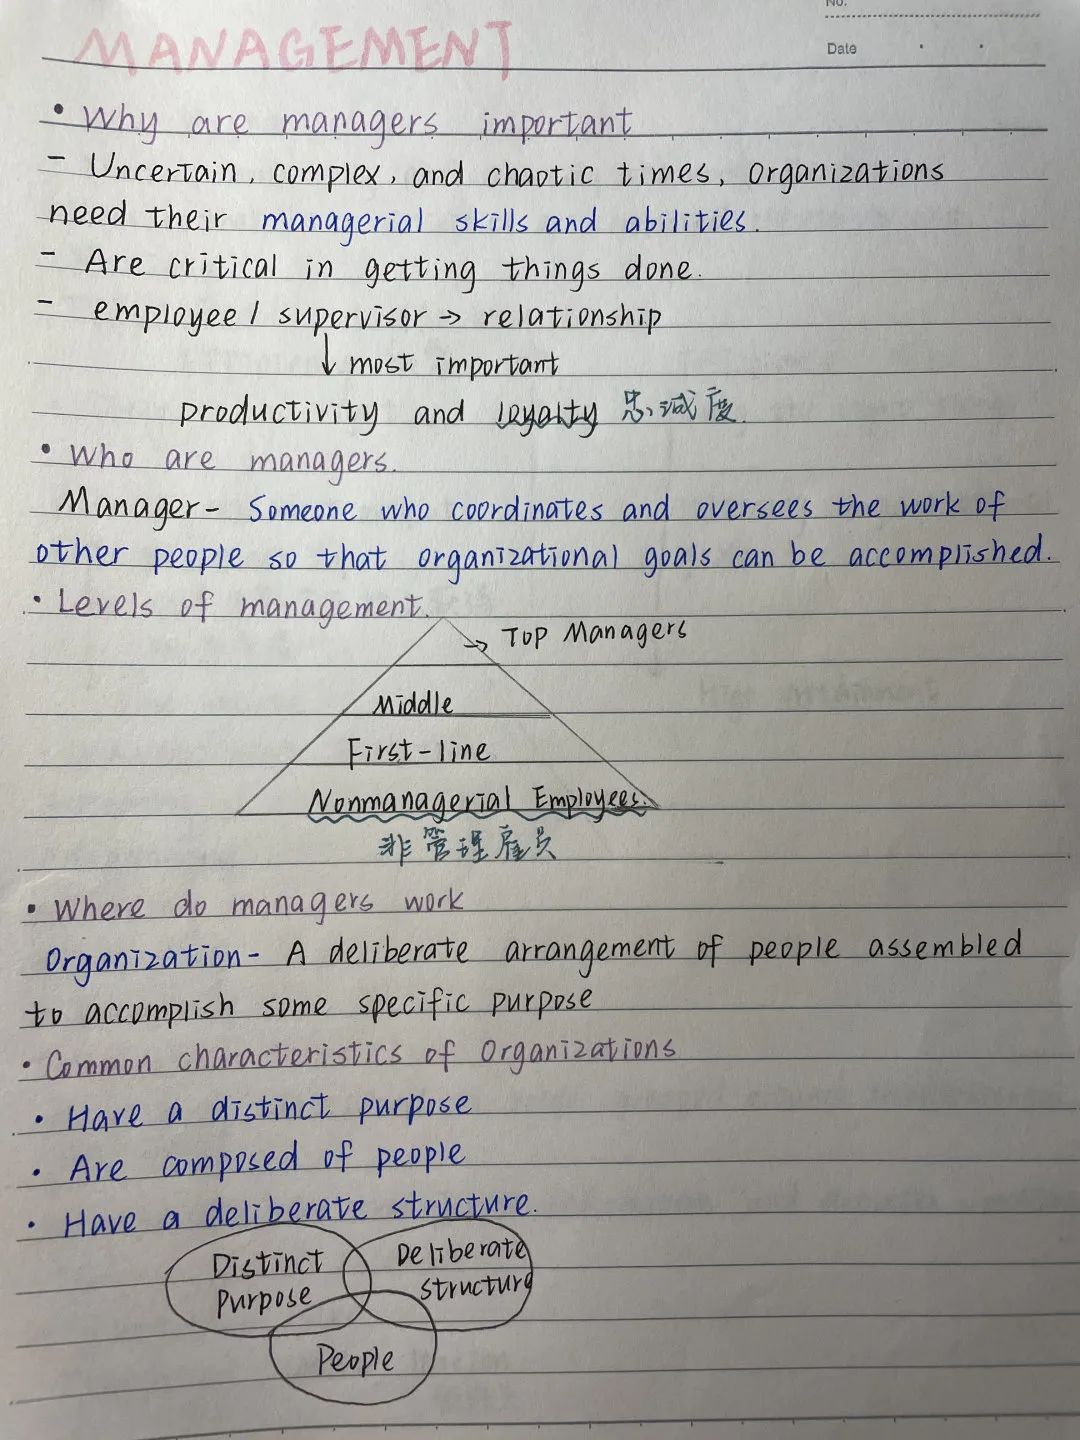 No.
Date
MANAGEMENT
• Why are managers important
- Uncertain, complex, and chaotic times, organizations
need their managerial skills and abilities.
- Are critical in getting things done.
- employee / supervisor → relationship
↓ most important
productivity and loyalty 忠诚度.
• Who are managers.
Manager - Someone who coordinates and oversees the work of
other people so that organizational goals can be accomplished.
• Levels of management.
→ Top Managers
Middle
First-line
Nonmanagerial Employees.
非管理雇员
• Where do managers work
Organization - A deliberate arrangement of people assembled
to accomplish some specific purpose
• Common characteristics of Organizations
• Have a distinct purpose
• Are composed of people
• Have a deliberate structure.
Distinct
Purpose
Deliberate
structure
People